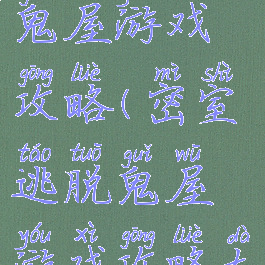 鬼屋游戏
gōng lüè mì shì
攻略(密室
táo tuō guǐ wū
逃脱鬼屋
yóu xì gōng lüè dà
游戏攻略大